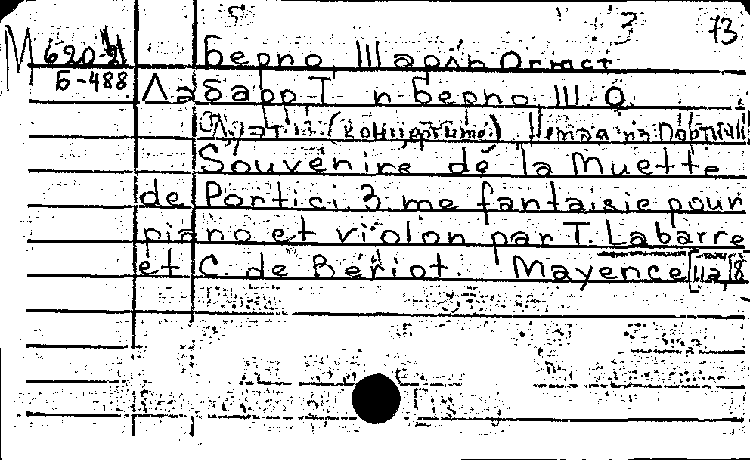 73
М 620-21 Берио, Шарль Огюст
Б-488 Лабарр Т. и Берио, Ш. О.
Дуэты (концертные). Немая из Портичи
Souvenirs de la Muette
de Portici. 3 me fantaisie pour
piano et violon par T. Labarre
et C. de Beriot. Mayence